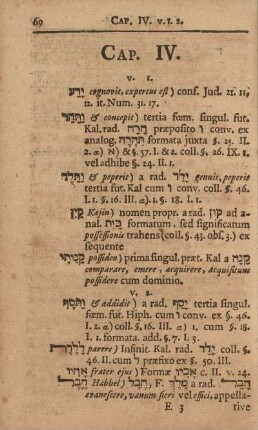 60 CAP. IV. v. 1. 2.
CAP. IV.
v. 1.
יָדַע cognovit, expertus est) conf. Jud. 21. 11,
12. it. Num. 31. 17.
וַתַּהַר & concepit) tertia fœm. singul. fut.
Kal. rad. הָרָה præposito ו conv. ex
analog. formata juxta §. 25. II.
2. α) א) & §. 57. I. & 2. coll. §. 26. IX. 1.
vel adhibe §. 24. II. 1.
וַתֵּלֶד & peperit) a rad. יָלַד genuit, peperit
tertia fut. Kal cum ו conv. coll. §. 46.
I. 1. §. 16. III. α). 1. §. 18. I. 1.
קַיִן Kajin) nomen propr. a rad. קין ad a-
nal. בַּיִת formatum, sed significatum
possessionis trahens (coll. §. 43. obs. 3.) ex
sequente
קָנִיתִי possideo) prima singul. præt. Kal a קָנָה
comparare, emere, acquirere, acquisitum
possidere cum dominio.
v. 2.
וַתֹּסֶף & addidit) a rad. יָסַף tertia singul.
fœm. fut. Hiph. cum ו conv. ex §. 46.
I. 2. α) coll. §. 16. III. α) 1. cum §. 18.
I. 1. formata. add. §. 7. I. 3.
לָלֶדֶת parere) Infinit. Kal. rad. יָלַד coll. §.
46. II. cum ל præfixo ex §. 50. III.
אָחִיו frater ejus) Formæ אָבִיו c. II. v. 24.
הָבֶל Habhel) הֶבֶל, F. מֶלֶךְ a rad. הָבַל
evanescere, vanum fieri vel effici, appella-
E 3 tive